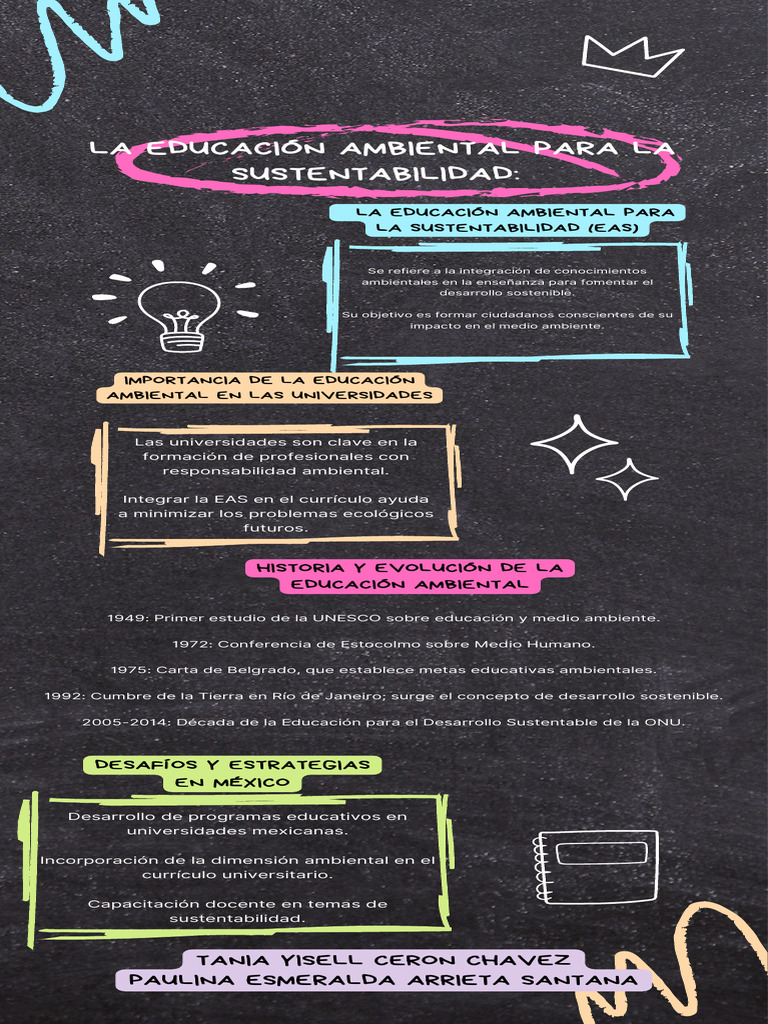 LA EDUCACIÓN AMBIENTAL PARA LA
SUSTENTABILIDAD:
LA EDUCACIÓN AMBIENTAL PARA
LA SUSTENTABILIDAD (EAS)
Se refiere a la integración de conocimientos
ambientales en la enseñanza para fomentar el
desarrollo sostenible.
Su objetivo es formar ciudadanos conscientes de su
impacto en el medio ambiente.
IMPORTANCIA DE LA EDUCACIÓN
AMBIENTAL EN LAS UNIVERSIDADES
Las universidades son clave en la
formación de profesionales con
responsabilidad ambiental.
Integrar la EAS en el currículo ayuda
a minimizar los problemas ecológicos
futuros.
HISTORIA Y EVOLUCIÓN DE LA
EDUCACIÓN AMBIENTAL
1949: Primer estudio de la UNESCO sobre educación y medio ambiente.
1972: Conferencia de Estocolmo sobre Medio Humano.
1975: Carta de Belgrado, que establece metas educativas ambientales.
1992: Cumbre de la Tierra en Río de Janeiro; surge el concepto de desarrollo sostenible.
2005-2014: Década de la Educación para el Desarrollo Sustentable de la ONU.
DESAFÍOS Y ESTRATEGIAS
EN MÉXICO
Desarrollo de programas educativos en
universidades mexicanas.
Incorporación de la dimensión ambiental en el
currículo universitario.
Capacitación docente en temas de
sustentabilidad.
TANIA YISELL CERON CHAVEZ
PAULINA ESMERALDA ARRIETA SANTANA